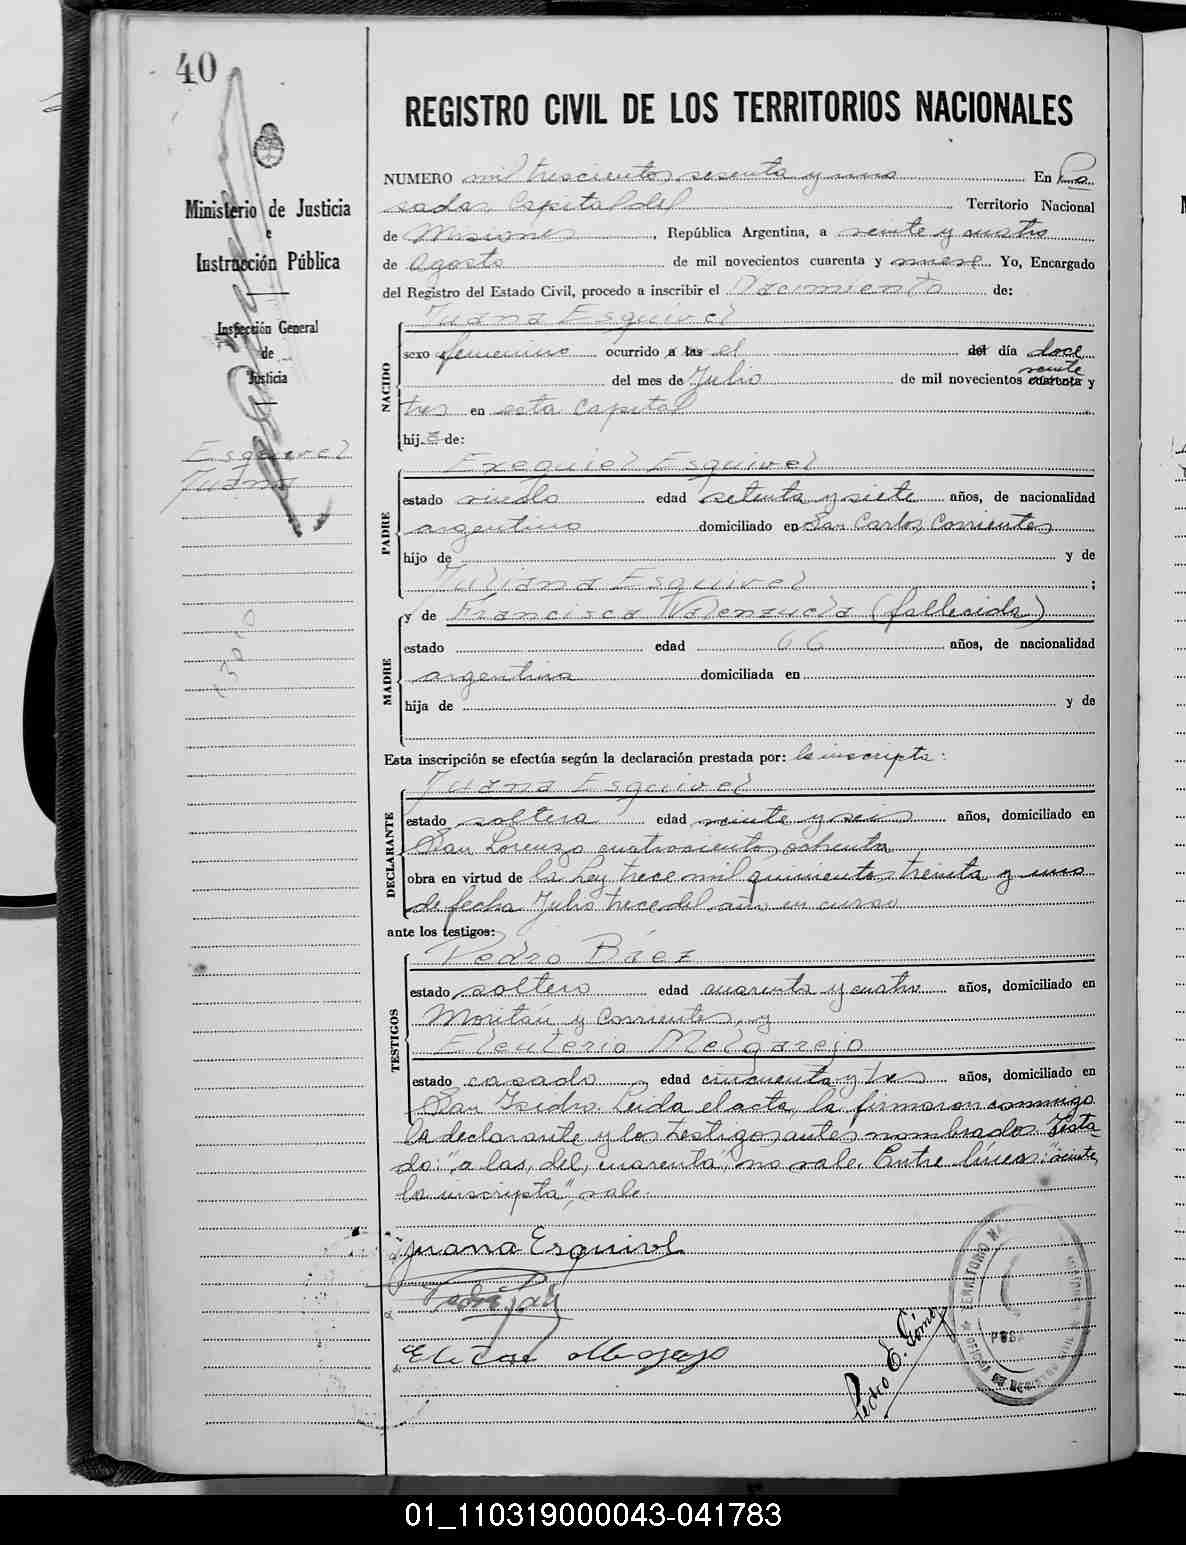 40
REGISTRO CIVIL DE LOS TERRITORIOS NACIONALES
Ministerio de Justicia
e
Instrucción Pública
Inspección General
de
Justicia
Esquivel
Juana
NUMERO mil trescientos sesenta y uno En Po
sadas Capital del Territorio Nacional
de Misiones, República Argentina, a veinte y cuatro
de Agosto de mil novecientos cuarenta y nueve Yo, Encargado
del Registro del Estado Civil, procedo a inscribir el Nacimiento de:
NACIDO
Juana Esquivel
sexo femenino ocurrido a las el del día doce
veinte
del mes de Julio de mil novecientos cuarenta y
tres en esta Capital
hij a de:
PADRE
Exequiel Esquivel
estado viudo edad setenta y siete años, de nacionalidad
argentino domiciliado en San Carlos, Corrientes
hijo de y de
Juliana Esquivel ;
MADRE
y de Francisca Valenzuela (fallecida)
estado edad 66 años, de nacionalidad
argentina domiciliada en
hija de y de
Esta inscripción se efectúa según la declaración prestada por: la inscripta:
DECLARANTE
Juana Esquivel
estado soltera edad veinte y seis años, domiciliado en
San Lorenzo cuatrocientos ochenta
obra en virtud de la Ley trece mil quinientos treinta y uno
de fecha Julio trece del año en curso
ante los testigos:
TESTIGOS
Pedro Báez
estado soltero edad cuarenta y cuatro años, domiciliado en
Moritán y Corrientes y
Eleuterio Melgarejo
estado casado, edad cincuenta y tres años, domiciliado en
San Isidro. Leida el acta, la firmaron conmigo
la declarante y los testigos antes nombrados. Testa-
do: "a las, del, cuarenta", no vale. Entre líneas: "veinte,
la inscripta", vale.
Juana Esquivel
Pedro E. Gómez
TERRITORIO
OFICINA DE REGISTRO CIVIL
01_110319000043-041783